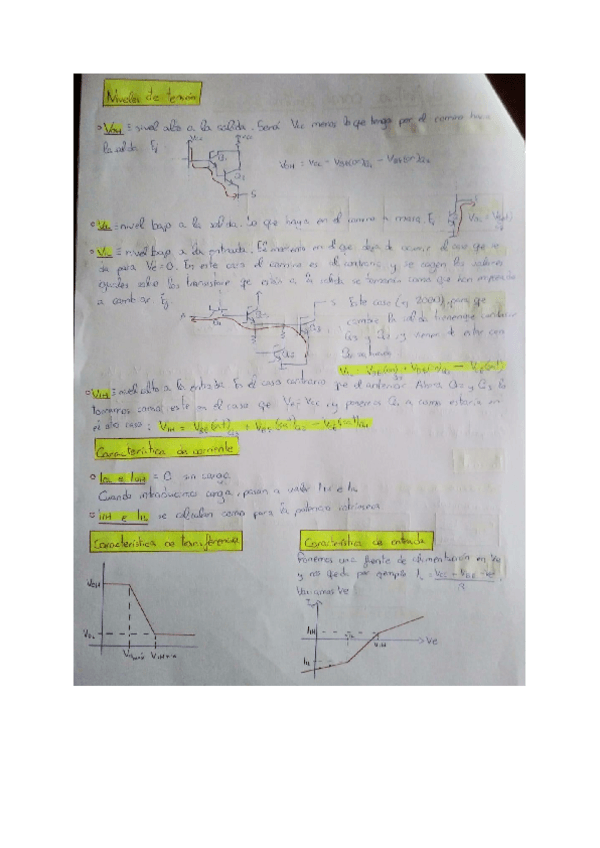 Niveles de tensión
VOH ≡ nivel alto a la salida. Será Vcc menos lo que tenga por el camino hacia
la salida. Ej:
VOH = Vcc - VBE(on)Q1 - VBE(on)Q2
Q1
Q2
S
VOL = nivel bajo a la salida. Lo que haya en el camino a masa. Ej
VIL ≡ nivel bajo a la entrada. El momento en el que deja de ocurrir el caso que se
da para Ve=0. En este caso el camino es al contrario, y se cogen los valores
iguales salvo los transistores que están a la salida se tomarán como que han empezado
a cambiar Ej:
A
S
Este caso (, 2000), para que
cambie la salida tienen que conducir
Q3 y Q2, y vienen de estar con
VIH ≡ nivel alto a la entrada. Es el caso contrario que el anterior. Ahora Q2 y Q3 lo
tomamos como este en el caso que Ve=Vcc, y ponemos Q1 a como estaría en
el otro caso:
Característica de corriente
IOL e IOH = 0 sin carga.
Cuando introducimos carga, pasan a valer
IIH e IIL se calculan como para la potencia
Característica de transferencia
Característica de entrada
Ponemos una fuente de alimentación en Ve
y nos queda por ejemplo
Variamos Ve
VOH
VOL
IIH
IIL
Ve